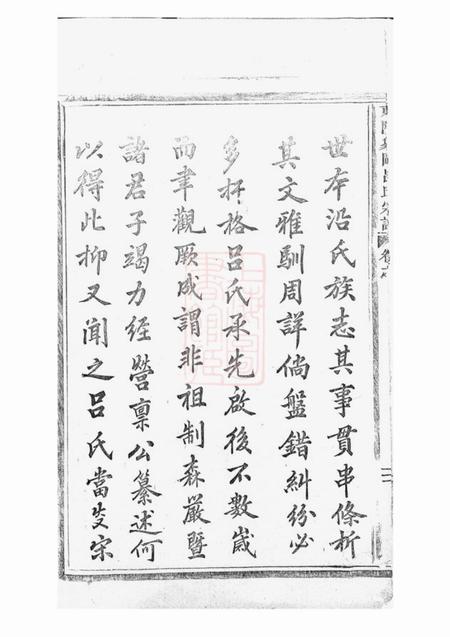 呂氏宗譜
世本沿氏族志其事貫串條析
其文雅馴周詳倘盤錯糾紛必
多扞格呂氏承先啟後不數歲
而聿觀厥成謂非祖制森嚴暨
諸君子竭力經營稟公纂述何
以得此抑又聞之呂氏當炎宋